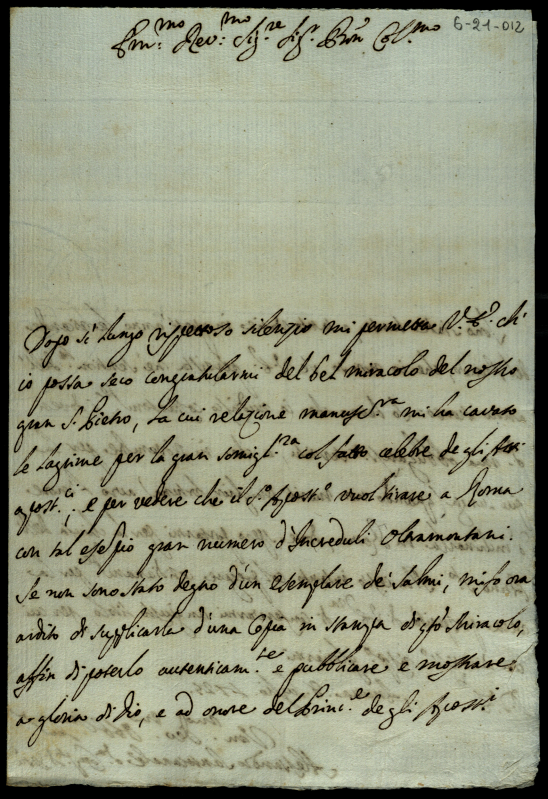 6-21-012
Em:mo Rev:mo Sig.re Sig.r Pron Col.mo
Dopo sì lungo rispettoso silenzio mi permetta V. E. ch'
io possa seco congratularmi del bel miracolo del nostro
gran S. Pietro, la cui relazione manusc.ra mi ha cavato
le lagrime per la gran somigl.za col fatto celebre degli Atti
apost.ci; e per vedere che il S.o Apost.o vuol tirare a Roma
con tal esempio gran numero d'Increduli Oltramontani.
Se non sono stato degno d'un esemplare de' Salmi, mi fo ora
ardito di supplicarla d'una Copia in stampa di qsto Miracolo,
affin di poterlo autenticam.te e pubblicare e mostrare
a gloria di Dio, e ad onore del Princ.e degli Apost.i